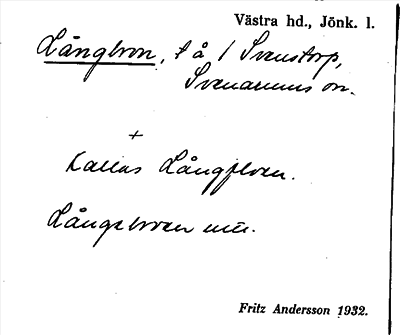 Västra hd., Jönk. l.
Långbron, t å / Svenstorp,
Svenarums sn.
+
Kallas Långbroen.
Långebroen
Fritz Andersson 1932.